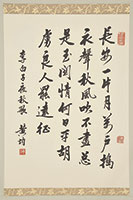 長安一片月萬戶搗
衣聲秋風吹不盡總
是玉關情何日平胡
虜良人罷遠征
李白子夜秋歌